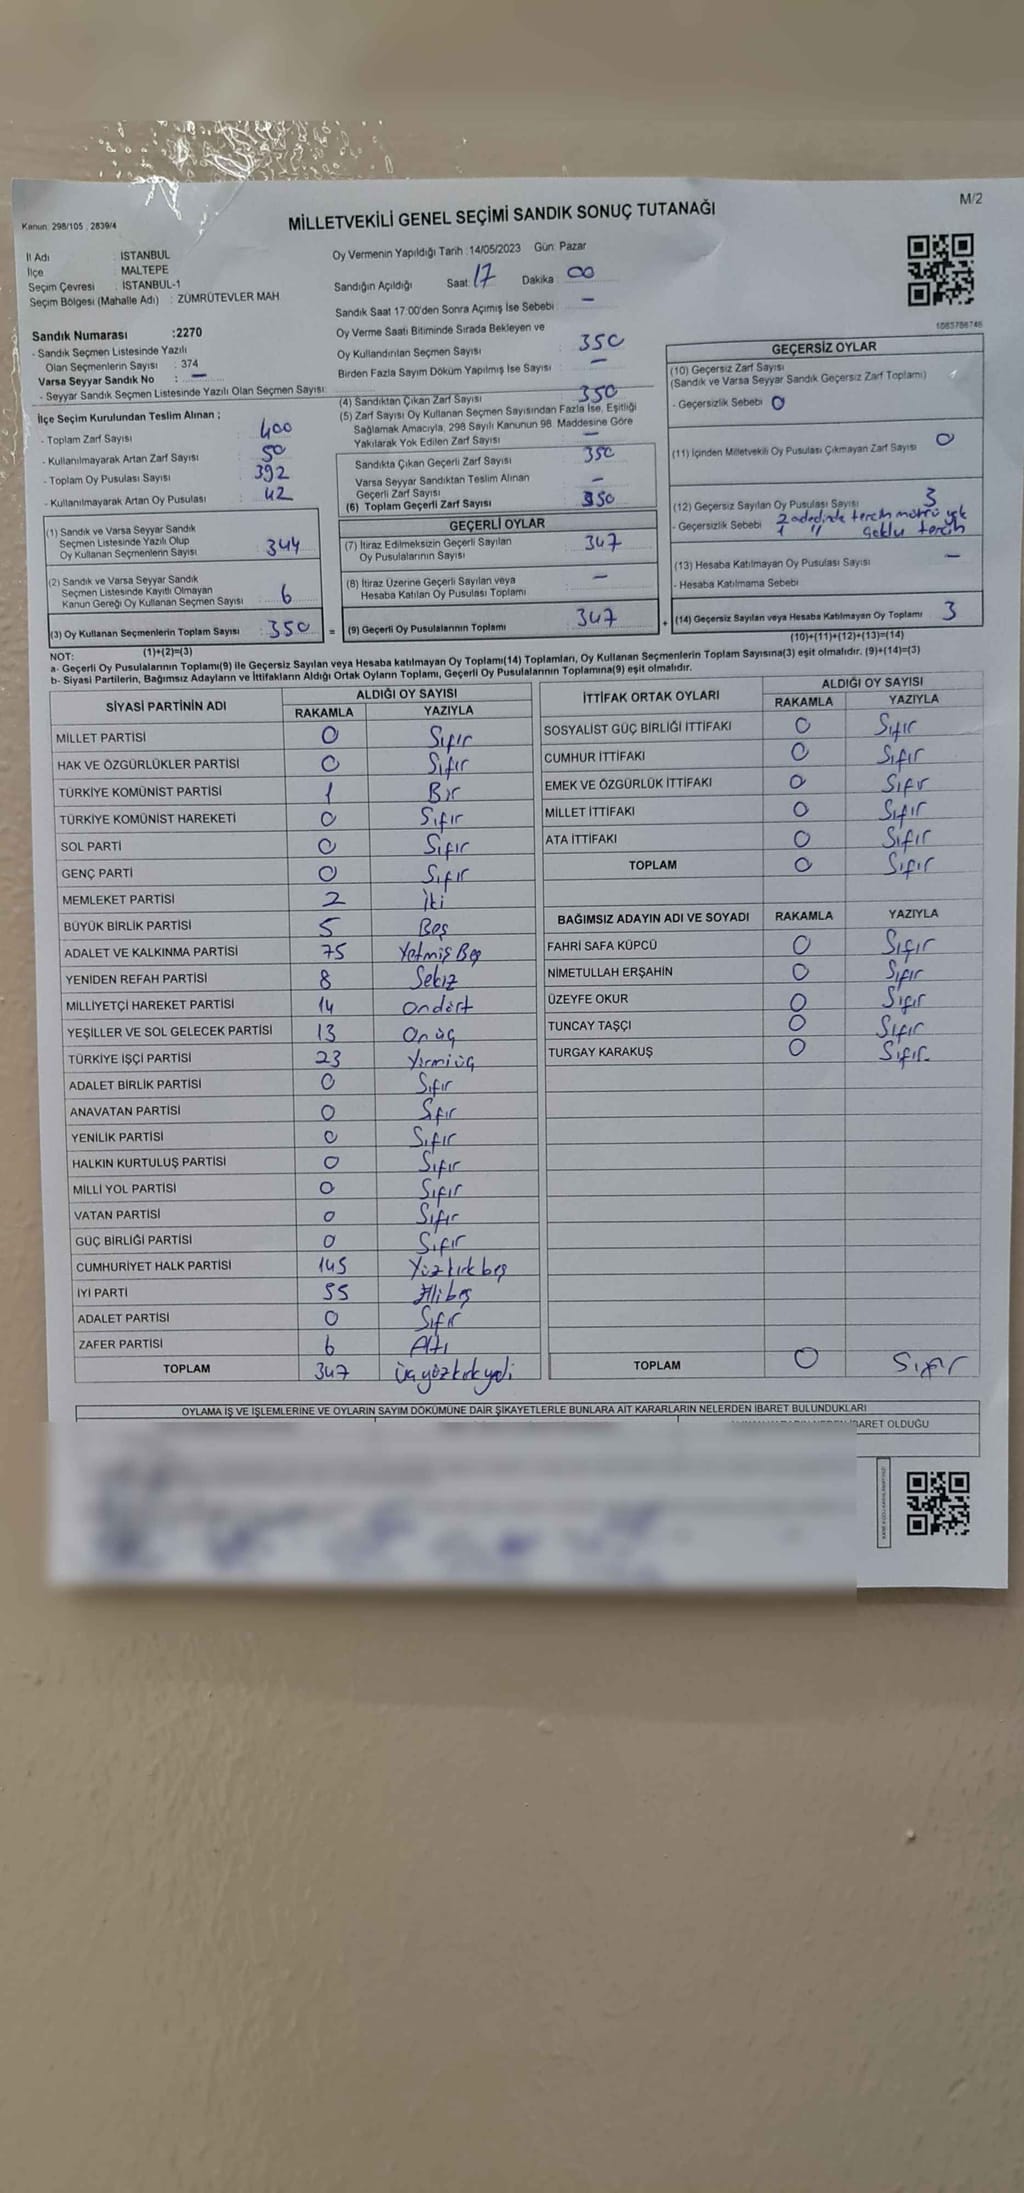 M/2
Kanun: 298/105 ; 2839/4
MİLLETVEKİLİ GENEL SEÇİMİ SANDIK SONUÇ TUTANAĞI
İl Adı : İSTANBUL
İlçe : MALTEPE
Seçim Çevresi : İSTANBUL-1
Seçim Bölgesi (Mahalle Adı) : ZÜMRÜTEVLER MAH
Sandık Numarası :2270
- Sandık Seçmen Listesinde Yazılı
Olan Seçmenlerin Sayısı : 374
Varsa Seyyar Sandık No : —
- Seyyar Sandık Seçmen Listesinde Yazılı Olan Seçmen Sayısı:
Oy Vermenin Yapıldığı Tarih :14/05/2023 Gün: Pazar
Sandığın Açıldığı Saat: 17 Dakika : 00
Sandık Saat 17:00'den Sonra Açımış İse Sebebi : —
Oy Verme Saati Bitiminde Sırada Bekleyen ve
Oy Kullandırılan Seçmen Sayısı : 350
Birden Fazla Sayım Döküm Yapılmış İse Sayısı : —
1083786746
İlçe Seçim Kurulundan Teslim Alınan ;
- Toplam Zarf Sayısı : 400
- Kullanılmayarak Artan Zarf Sayısı : 50
- Toplam Oy Pusulası Sayısı : 392
- Kullanılmayarak Artan Oy Pusulası : 42
(1) Sandık ve Varsa Seyyar Sandık
Seçmen Listesinde Yazılı Olup
Oy Kullanan Seçmenlerin Sayısı : 344
(2) Sandık ve Varsa Seyyar Sandık
Seçmen Listesinde Kayıtlı Olmayan
Kanun Gereği Oy Kullanan Seçmen Sayısı : 6
(3) Oy Kullanan Seçmenlerin Toplam Sayısı : 350 =
(1)+(2)=(3)
(4) Sandıktan Çıkan Zarf Sayısı : 350
(5) Zarf Sayısı Oy Kullanan Seçmen Sayısından Fazla İse, Eşitliği
Sağlamak Amacıyla, 298 Sayılı Kanunun 98. Maddesine Göre
Yakılarak Yok Edilen Zarf Sayısı : —
Sandıkta Çıkan Geçerli Zarf Sayısı : 350
Varsa Seyyar Sandıktan Teslim Alınan
Geçerli Zarf Sayısı : —
(6) Toplam Geçerli Zarf Sayısı : 350
GEÇERLİ OYLAR
(7) İtiraz Edilmeksizin Geçerli Sayılan
Oy Pusulalarının Sayısı : 347
(8) İtiraz Üzerine Geçerli Sayılan veya
Hesaba Katılan Oy Pusulası Toplamı : —
(9) Geçerli Oy Pusulalarının Toplamı : 347 +
GEÇERSİZ OYLAR
(10) Geçersiz Zarf Sayısı
(Sandık ve Varsa Seyyar Sandık Geçersiz Zarf Toplamı)
- Geçersizlik Sebebi : 0
(11) İçinden Milletvekili Oy Pusulası Çıkmayan Zarf Sayısı : 0
(12) Geçersiz Sayılan Oy Pusulası Sayısı : 3
- Geçersizlik Sebebi : 2 adedinde tercih mührü yok
1 " çoklu tercih
(13) Hesaba Katılmayan Oy Pusulası Sayısı : —
- Hesaba Katılmama Sebebi :
(14) Geçersiz Sayılan veya Hesaba Katılmayan Oy Toplamı : 3
(10)+(11)+(12)+(13)=(14)
NOT:
a- Geçerli Oy Pusulalarının Toplamı(9) ile Geçersiz Sayılan veya Hesaba katılmayan Oy Toplamı(14) Toplamları, Oy Kullanan Seçmenlerin Toplam Sayısına(3) eşit olmalıdır. (9)+(14)=(3)
b- Siyasi Partilerin, Bağımsız Adayların ve İttifakların Aldığı Ortak Oyların Toplamı, Geçerli Oy Pusulalarının Toplamına(9) eşit olmalıdır.
SİYASİ PARTİNİN ADI ALDIĞI OY SAYISI
RAKAMLA YAZIYLA
MİLLET PARTİSİ 0 Sıfır
HAK VE ÖZGÜRLÜKLER PARTİSİ 0 Sıfır
TÜRKİYE KOMÜNİST PARTİSİ 1 Bir
TÜRKİYE KOMÜNİST HAREKETİ 0 Sıfır
SOL PARTİ 0 Sıfır
GENÇ PARTİ 0 Sıfır
MEMLEKET PARTİSİ 2 İki
BÜYÜK BİRLİK PARTİSİ 5 Beş
ADALET VE KALKINMA PARTİSİ 75 Yetmiş Beş
YENİDEN REFAH PARTİSİ 8 Sekiz
MİLLİYETÇİ HAREKET PARTİSİ 14 Ondört
YEŞİLLER VE SOL GELECEK PARTİSİ 13 Onüç
TÜRKİYE İŞÇİ PARTİSİ 23 Yirmiüç
ADALET BİRLİK PARTİSİ 0 Sıfır
ANAVATAN PARTİSİ 0 Sıfır
YENİLİK PARTİSİ 0 Sıfır
HALKIN KURTULUŞ PARTİSİ 0 Sıfır
MİLLİ YOL PARTİSİ 0 Sıfır
VATAN PARTİSİ 0 Sıfır
GÜÇ BİRLİĞİ PARTİSİ 0 Sıfır
CUMHURİYET HALK PARTİSİ 145 Yüzkırkbeş
İYİ PARTİ 55 Ellibeş
ADALET PARTİSİ 0 Sıfır
ZAFER PARTİSİ 6 Altı
TOPLAM 347 üçyüzkırkyedi
İTTİFAK ORTAK OYLARI ALDIĞI OY SAYISI
RAKAMLA YAZIYLA
SOSYALİST GÜÇ BİRLİĞİ İTTİFAKI 0 Sıfır
CUMHUR İTTİFAKI 0 Sıfır
EMEK VE ÖZGÜRLÜK İTTİFAKI 0 Sıfır
MİLLET İTTİFAKI 0 Sıfır
ATA İTTİFAKI 0 Sıfır
TOPLAM 0 Sıfır
BAĞIMSIZ ADAYIN ADI VE SOYADI RAKAMLA YAZIYLA
FAHRİ SAFA KÜPCÜ 0 Sıfır
NİMETULLAH ERŞAHİN 0 Sıfır
ÜZEYFE OKUR 0 Sıfır
TUNCAY TAŞÇI 0 Sıfır
TURGAY KARAKUŞ 0 Sıfır
TOPLAM 0 Sıfır
OYLAMA İŞ VE İŞLEMLERİNE VE OYLARIN SAYIM DÖKÜMÜNE DAİR ŞİKAYETLERLE BUNLARA AİT KARARLARIN NELERDEN İBARET BULUNDUKLARI
İBARET OLDUĞU